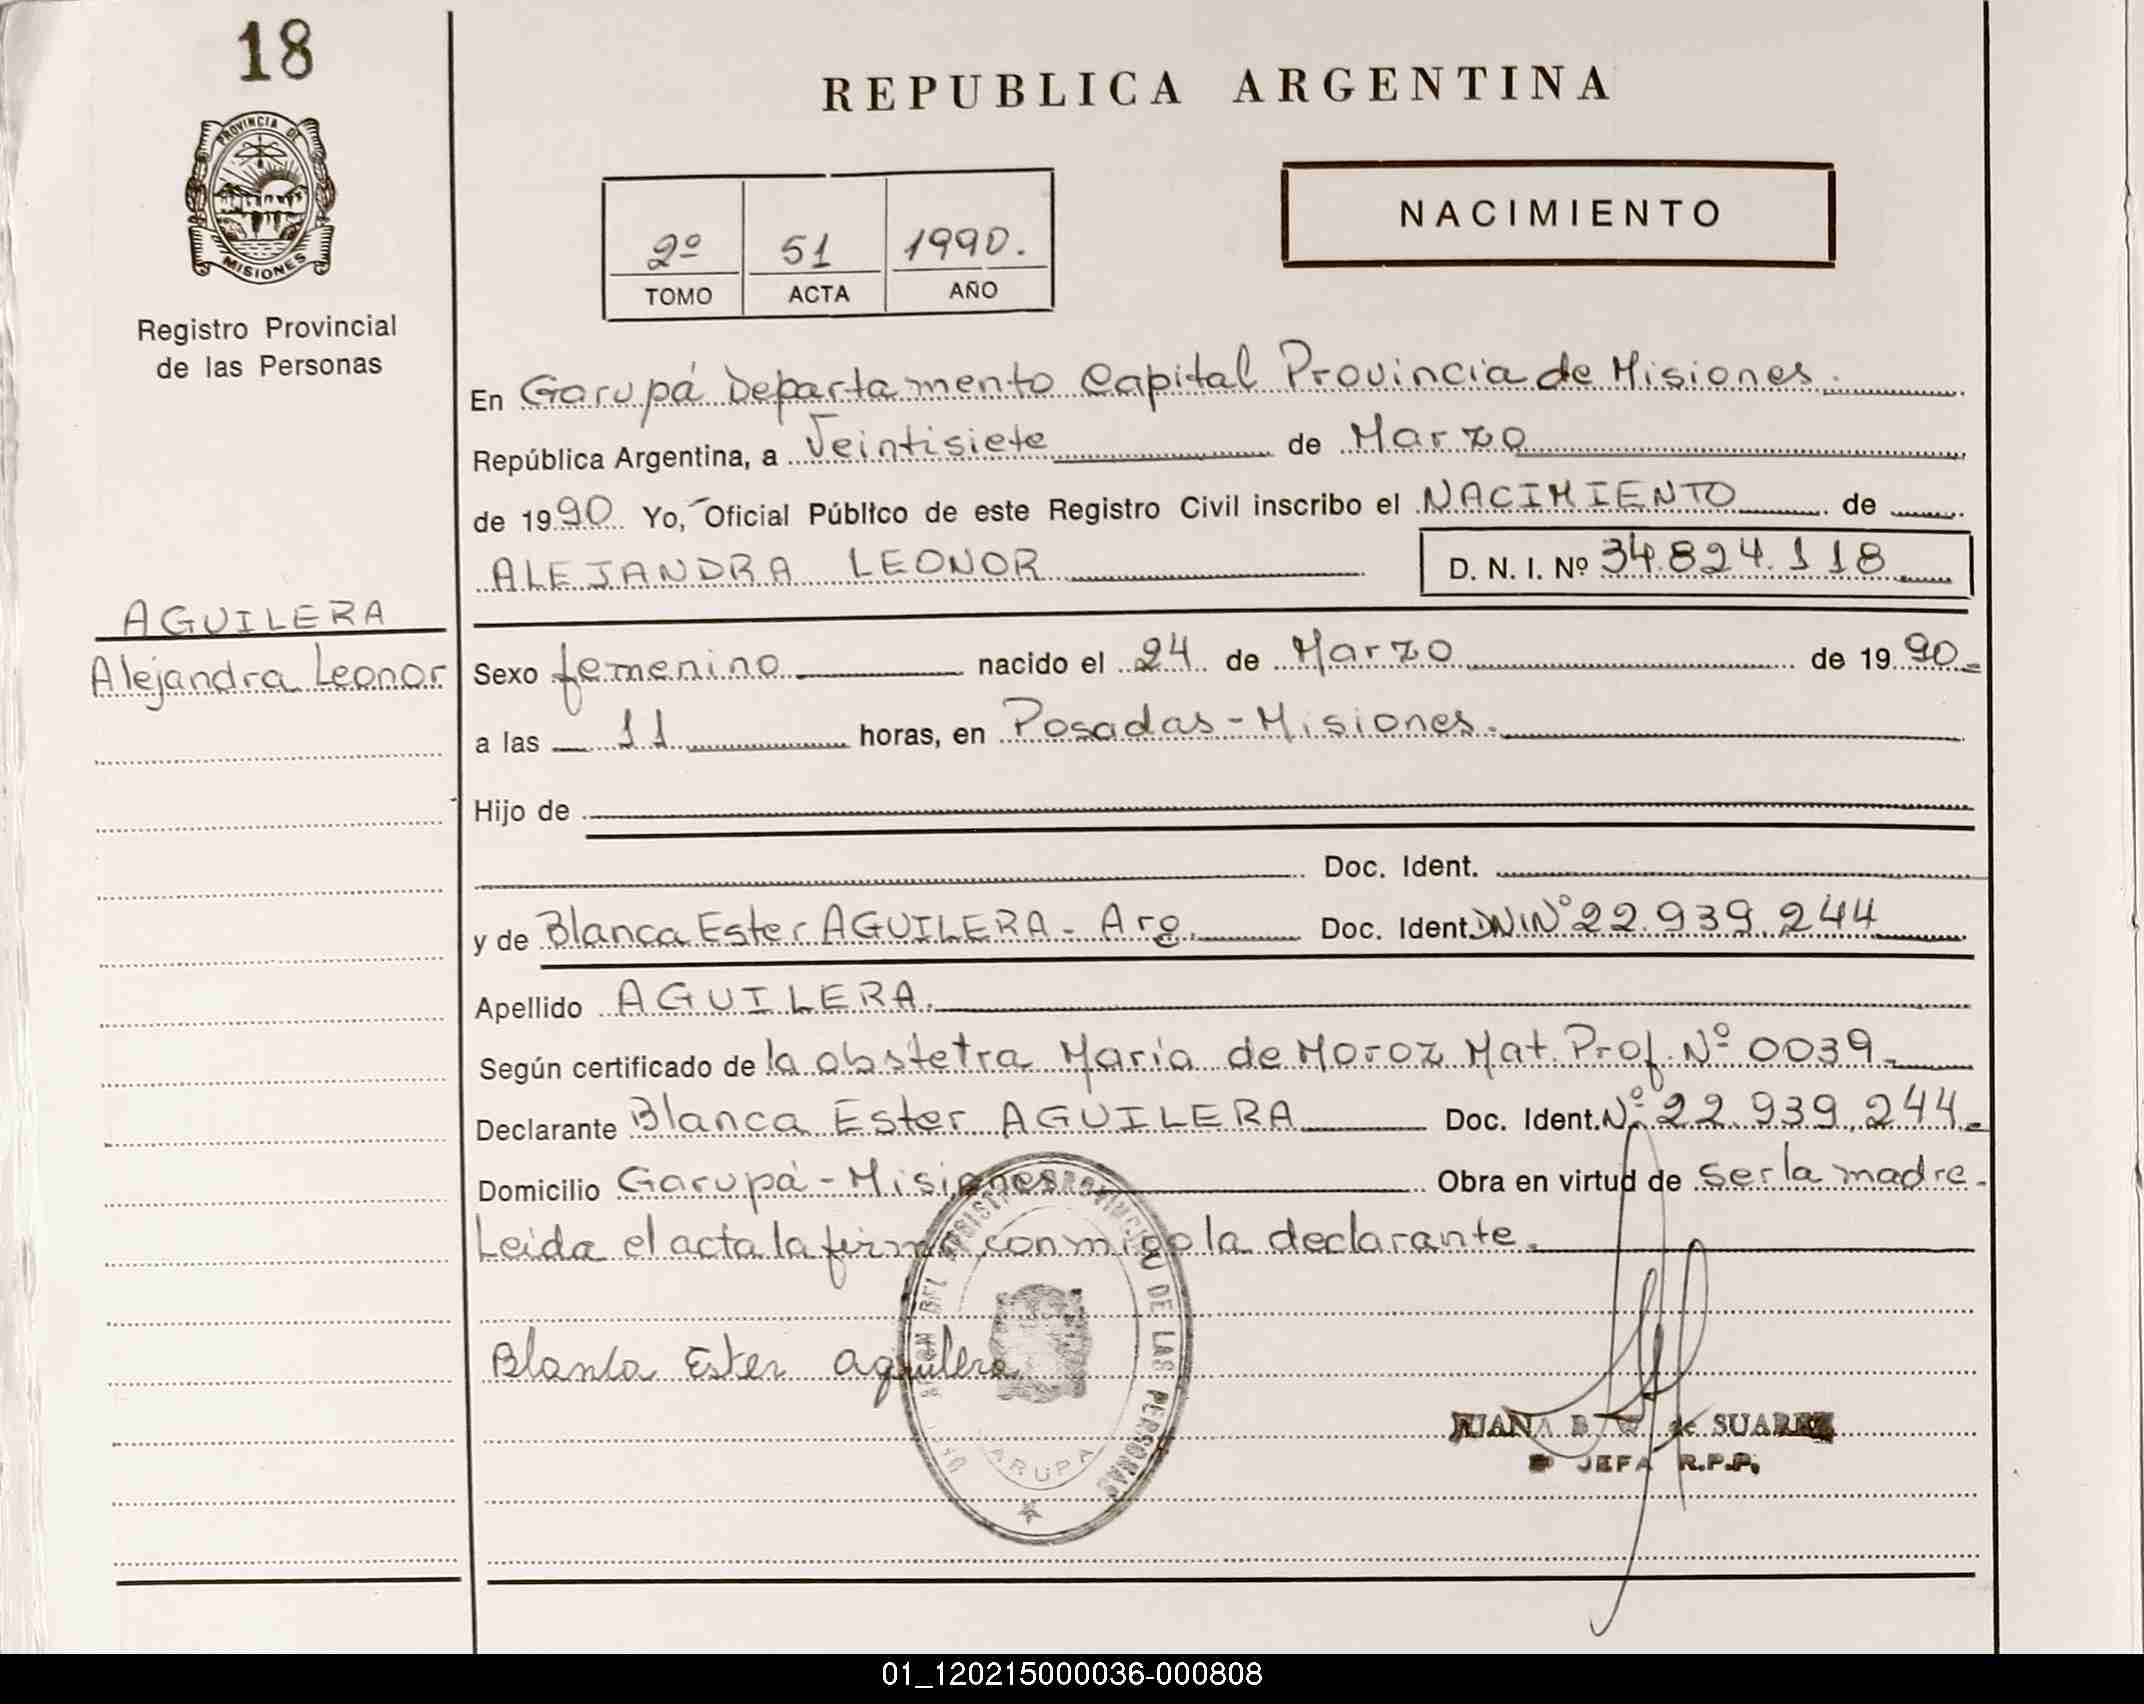 18
PROVINCIA DE
MISIONES
Registro Provincial
de las Personas
REPUBLICA ARGENTINA
2º 51 1990.
TOMO ACTA AÑO
NACIMIENTO
En Garupá Departamento Capital Provincia de Misiones.
República Argentina, a Veintisiete de Marzo
de 1990 Yo, Oficial Público de este Registro Civil inscribo el NACIMIENTO de
ALEJANDRA LEONOR D. N. I. Nº 34.824.118
AGUILERA
Alejandra Leonor
Sexo femenino nacido el 24 de Marzo de 1990
a las 11 horas, en Posadas - Misiones.
Hijo de
Doc. Ident.
y de Blanca Ester AGUILERA - Arg. Doc. Ident. DNI Nº 22.939.244
Apellido AGUILERA.
Según certificado de la obstetra Maria de Moroz Mat. Prof. Nº 0039
Declarante Blanca Ester AGUILERA Doc. Ident. Nº 22.939.244
Domicilio Garupá - Misiones Obra en virtud de ser la madre.
Leida el acta la firma conmigo la declarante.
DEL REGISTRO PROVINCIAL DE LAS PERSONAS
GARUPA
Blanca Ester Aguilera
JUANA B. de SUAREZ
JEFA R.P.P.
01_120215000036-000808